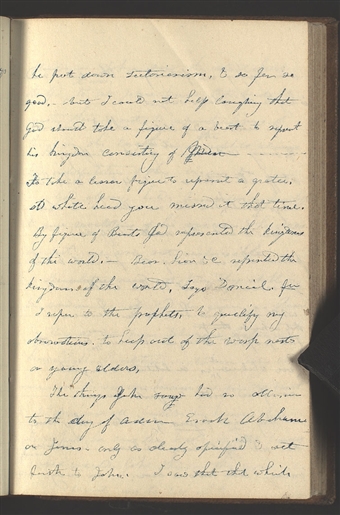 he put down sectarianism, & so far so
good. but I could not help laughing that
God should take a figure of a beast to repnt
his kingdom consisting of
To take a lesser figure to reprsnt a greater.
old white head you missed it that time.
By figure of Beasts God represented the kingdoms
of the world. — Bear, Lion &c represented the
kingdoms of the world, Says Daniel. for
I refer to the prophets, to qualify my
observations. to keep out of the wasp nests
or young elders,
The things John saw had no allusion
to the day of Adam Enoch Abraham
or Jesus. only as clearly specified & set
forth to John. I saw that which